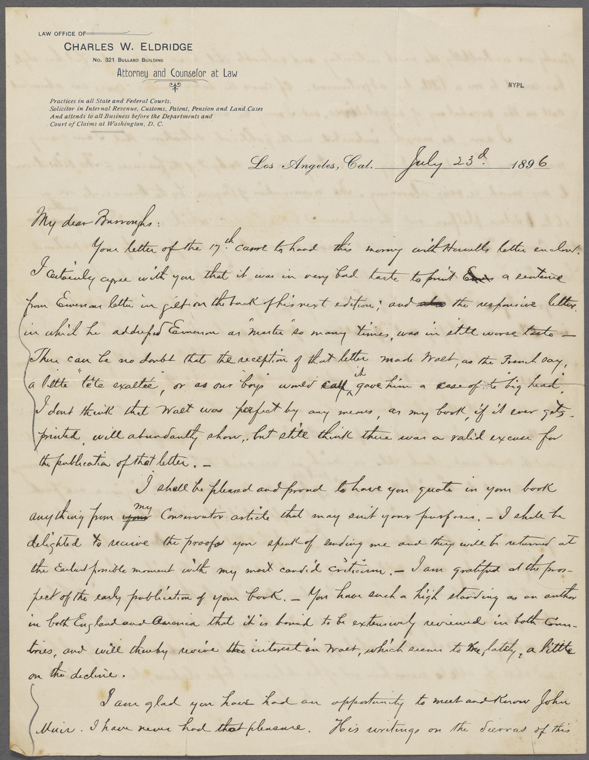 LAW OFFICE OF
CHARLES W. ELDRIDGE
No. 321 BULLARD BUILDING
Attorney and Counselor at Law
NYPL
Practices in all State and Federal Courts,
Solicitor in Internal Revenue, Customs, Patent, Pension and Land Cases
And attends to all Business before the Departments and
Court of Claims at Washington, D. C.
Los Angeles, Cal. July 23d. 1896
My dear Burroughs:
Your letter of the 17th came to hand this morning with letter enclosed.
I certainly agree with you that it was in very bad taste to print a sentence
from Emersons letter in gilt on the back of his next edition; and the responsive letter
in which he addressed Emerson as "master" so many times, was in still worse taste —
There can be no doubt that the reception of that letter made Walt, as the French say,
a little "tête exaltée", or as our boys would call it gave him a case of big head.
I dont think that Walt was perfect by any means, as my book, if it ever gets
printed, will abundantly show, but still think there was a valid excuse for
the publication of that letter. —
I shall be pleased and proud to have you quote in your book
anything from my Conservator article that may suit your purpose. — I shall be
delighted to receive the proofs you speak of sending me and they will be returned at
the earliest possible moment with my most candid criticism. — I am gratified at the pros-
pect of the early publication of your book. — You have such a high standing as an author
in both England and America that it is bound to be extensively reviewed in both coun-
tries, and will thereby revive the interest in Walt, which seems to be, lately, a little
on the decline.
I am glad you have had an opportunity to meet and know John
Muir. I have never had that pleasure. His writings on the Sierras of this